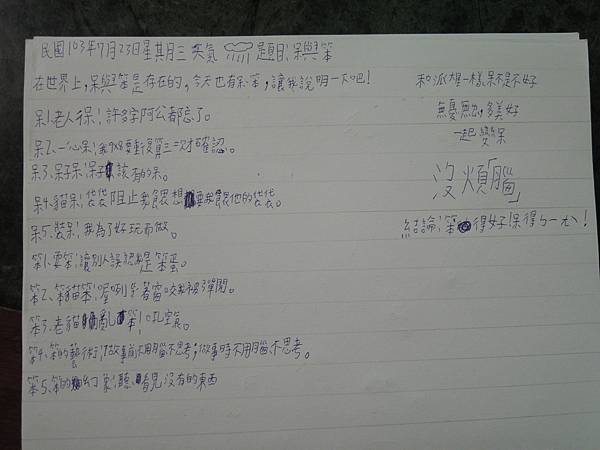 民國103年7月23日星其月三 天氣 題目:呆與笨
在世界上,呆與笨是存在的,今天也有呆、笨,讓我說明一下吧!
呆1.老人呆:許多字阿公都忘了。
呆2.一心呆:我9X8要重復算三次才確認。
呆3.呆子呆:呆子該有的呆。
呆4.貓呆:袋袋阻止我餵想要我餵他的袋袋。
呆5.裝呆:我為了好玩而做。
笨1.耍笨:讓別人誤認我是笨蛋。
笨2.笨貓笨:喔咧隔著窗咬我被彈開。
笨3.老貓亂笨:吼空氣。
笨4.笨的藝術:做事前不用腦不思考;做事時不用腦不思考。
笨5.笨的幻象:聽看見沒有的東西
和派大星一樣,呆不是不好
無憂無慮,多美好
一起變呆
沒煩「腦」
結論:笨得好!呆得ㄅㄧㄤˋ!